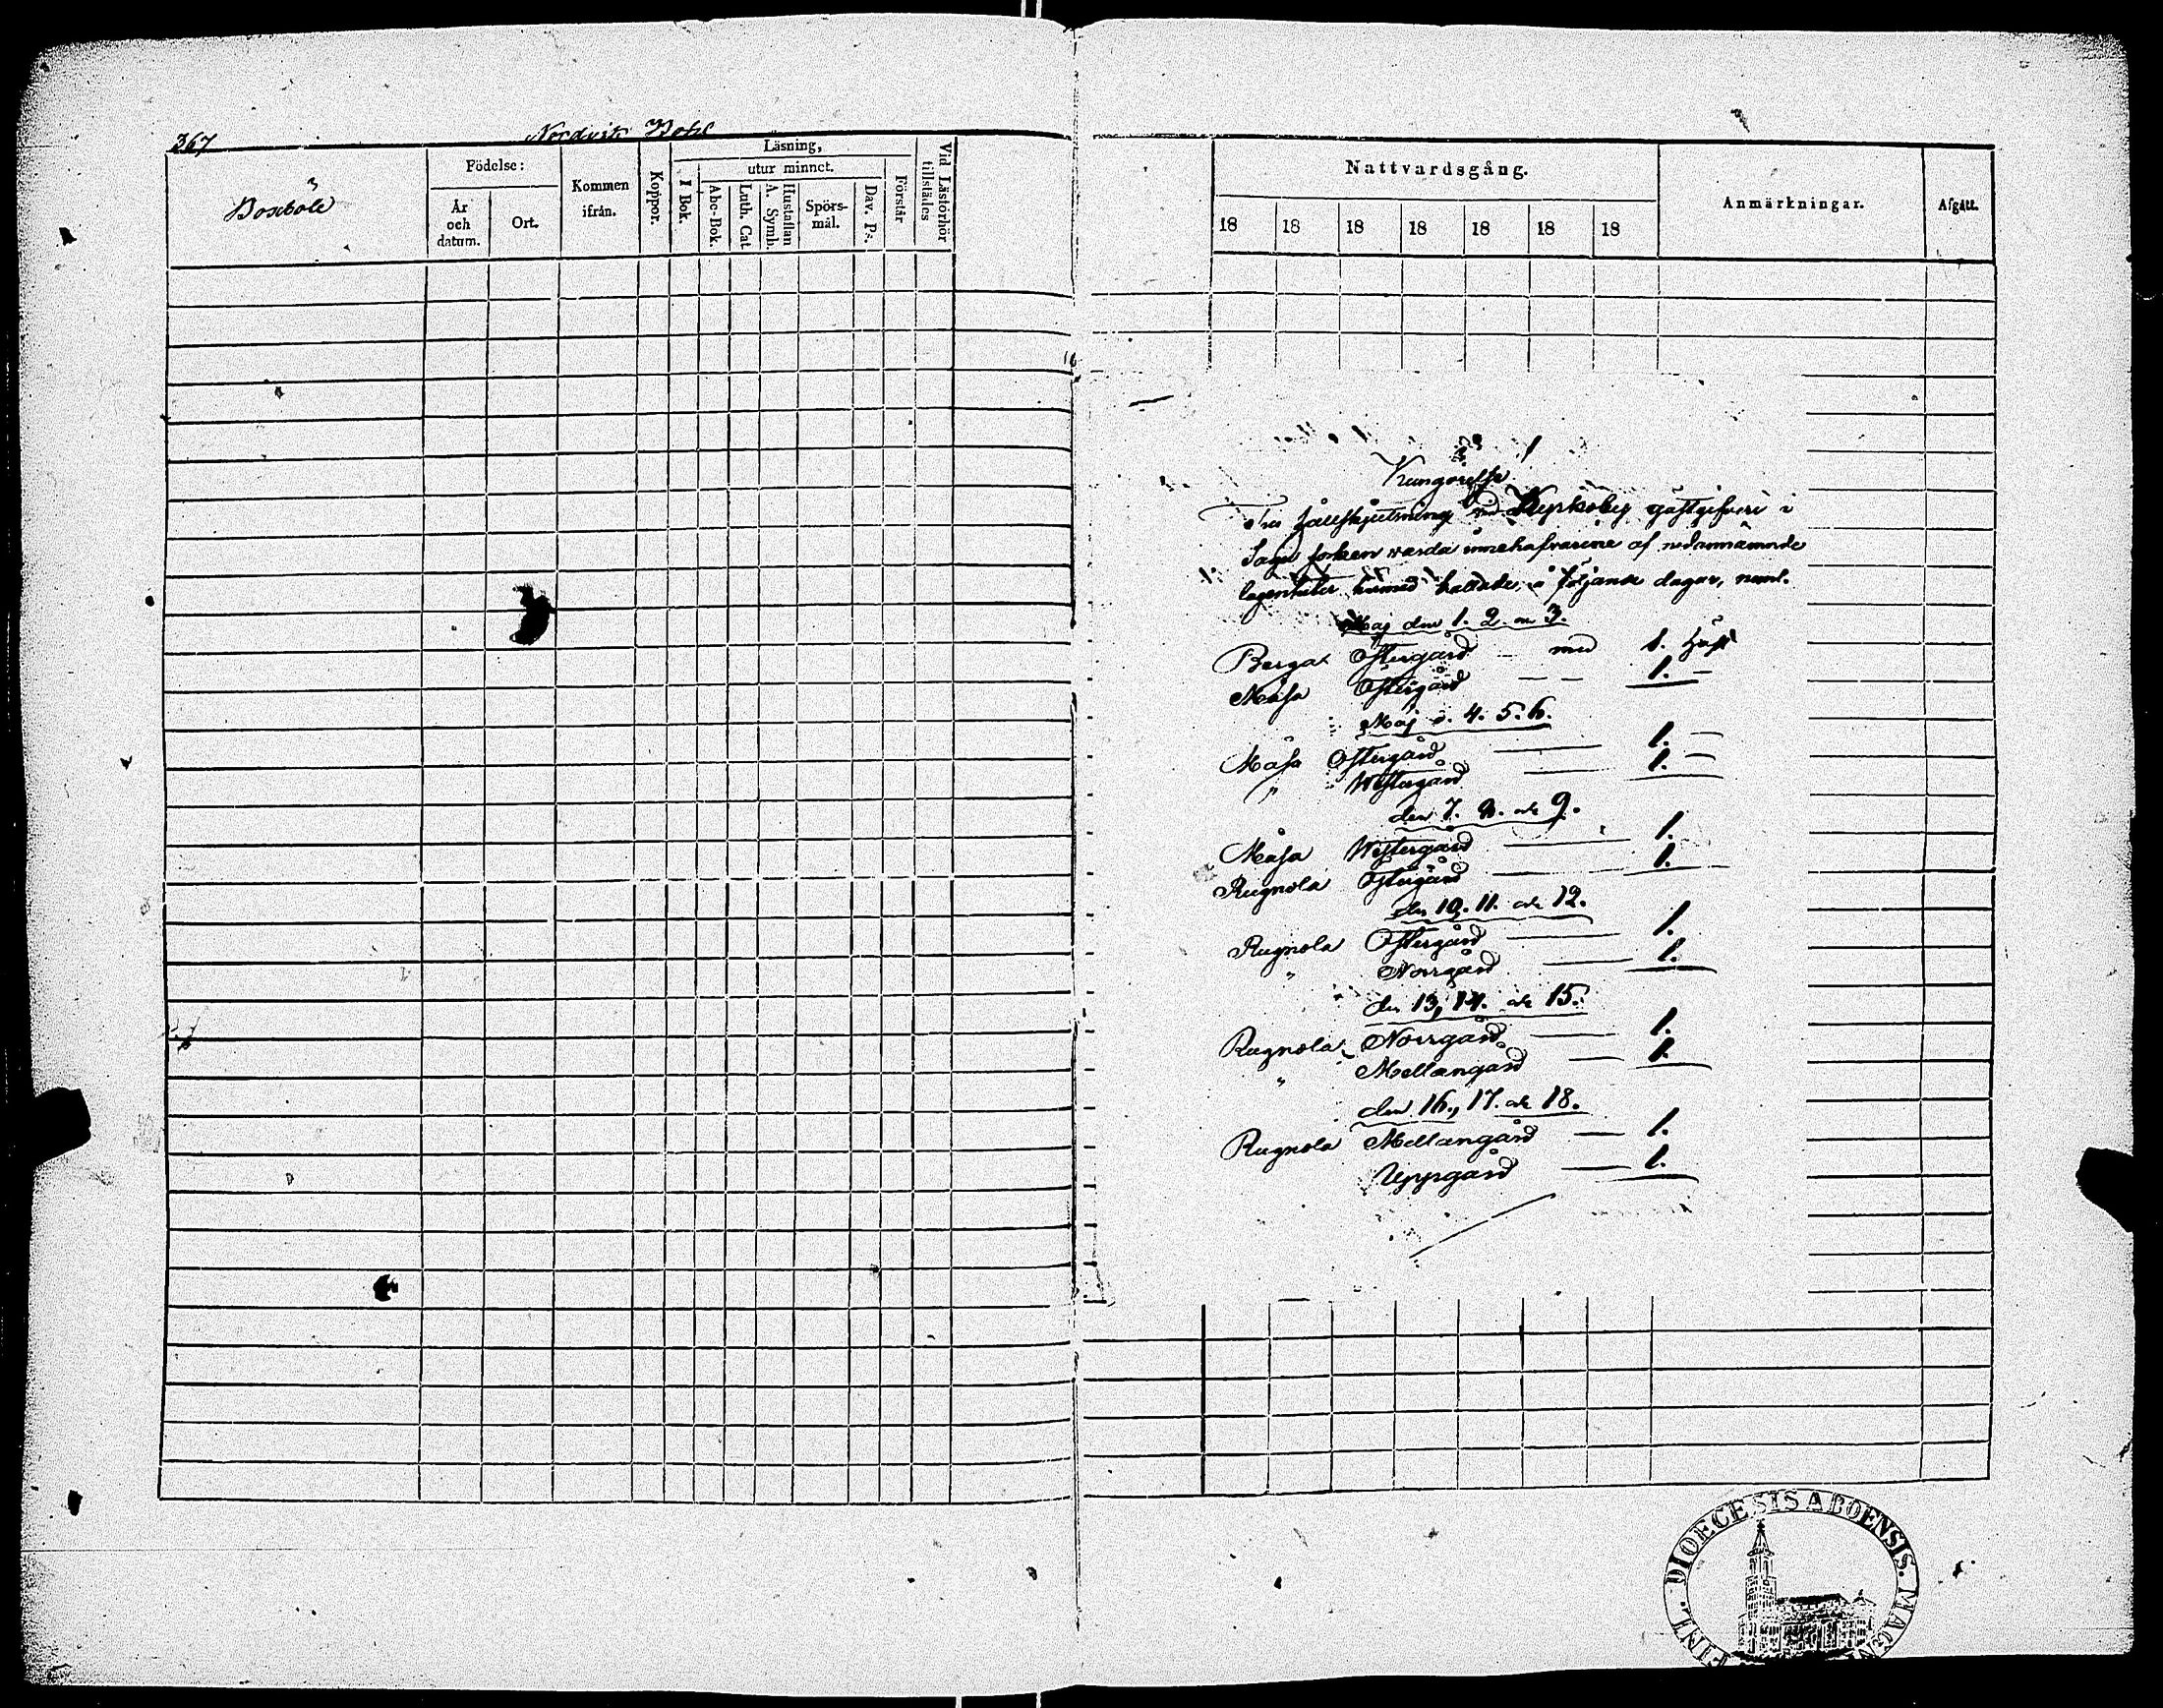 367
Nordvik
Boxböle
Födelse:
År och datum.
Ort.
Kommen ifrån.
Koppor.
Läsning,
I Bok.
utur minnet.
Abc-Bok.
Luth. Cat.
Hustaflan A. Symb.
Spörs-mål.
Dav. Ps.
Förstår
Vid Läsförhör tillstädes
Nattvardsgång.
18 18 18 18 18 18 18
Anmärkningar.
Afgått.
Kungörelse
hållskjutning vid Kyrkoby gästgifveri i
Sagu socken varda innehafvarene af nedannämnde
lägenheter härmed kallade, å följande dagar, neml.
Maj den 1. 2. o 3.
Östergård med 1. häst
Måsa Östergård — 1. —
Maj d. 4. 5. 6.
Måsa Östergård — 1. —
" Westergård — 1. —
den 7. 8. och 9.
Måsa Westergård — 1.
Rugnola Östergård — 1.
den 10. 11. och 12.
Rugnola Östergård — 1.
" Norrgård — 1.
den 13, 14. och 15.
Rugnola Norrgård — 1.
" Mellangård — 1.
den 16., 17. och 18.
Rugnola Mellangård — 1.
Uppgård — 1.
FINL. DIOECESIS ABOENSIS. MAGN